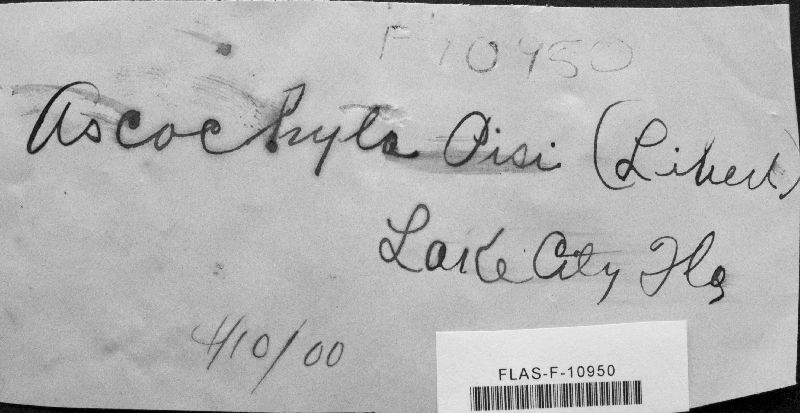 F10950
Ascochyta Pisi (Libert)
Lake City Fla
4/10/00
FLAS-F-10950